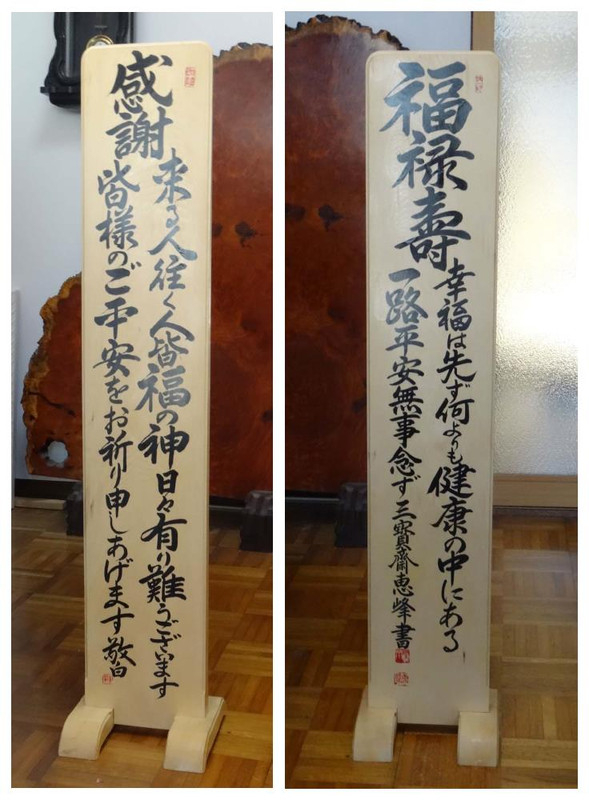 感謝
来る人往く人皆福の神日々有り難うございます
皆様のご平安をお祈り申しあげます敬白
福禄壽
幸福は先ず何よりも健康の中にある
一路平安無事念ず三寶齋恵峰書